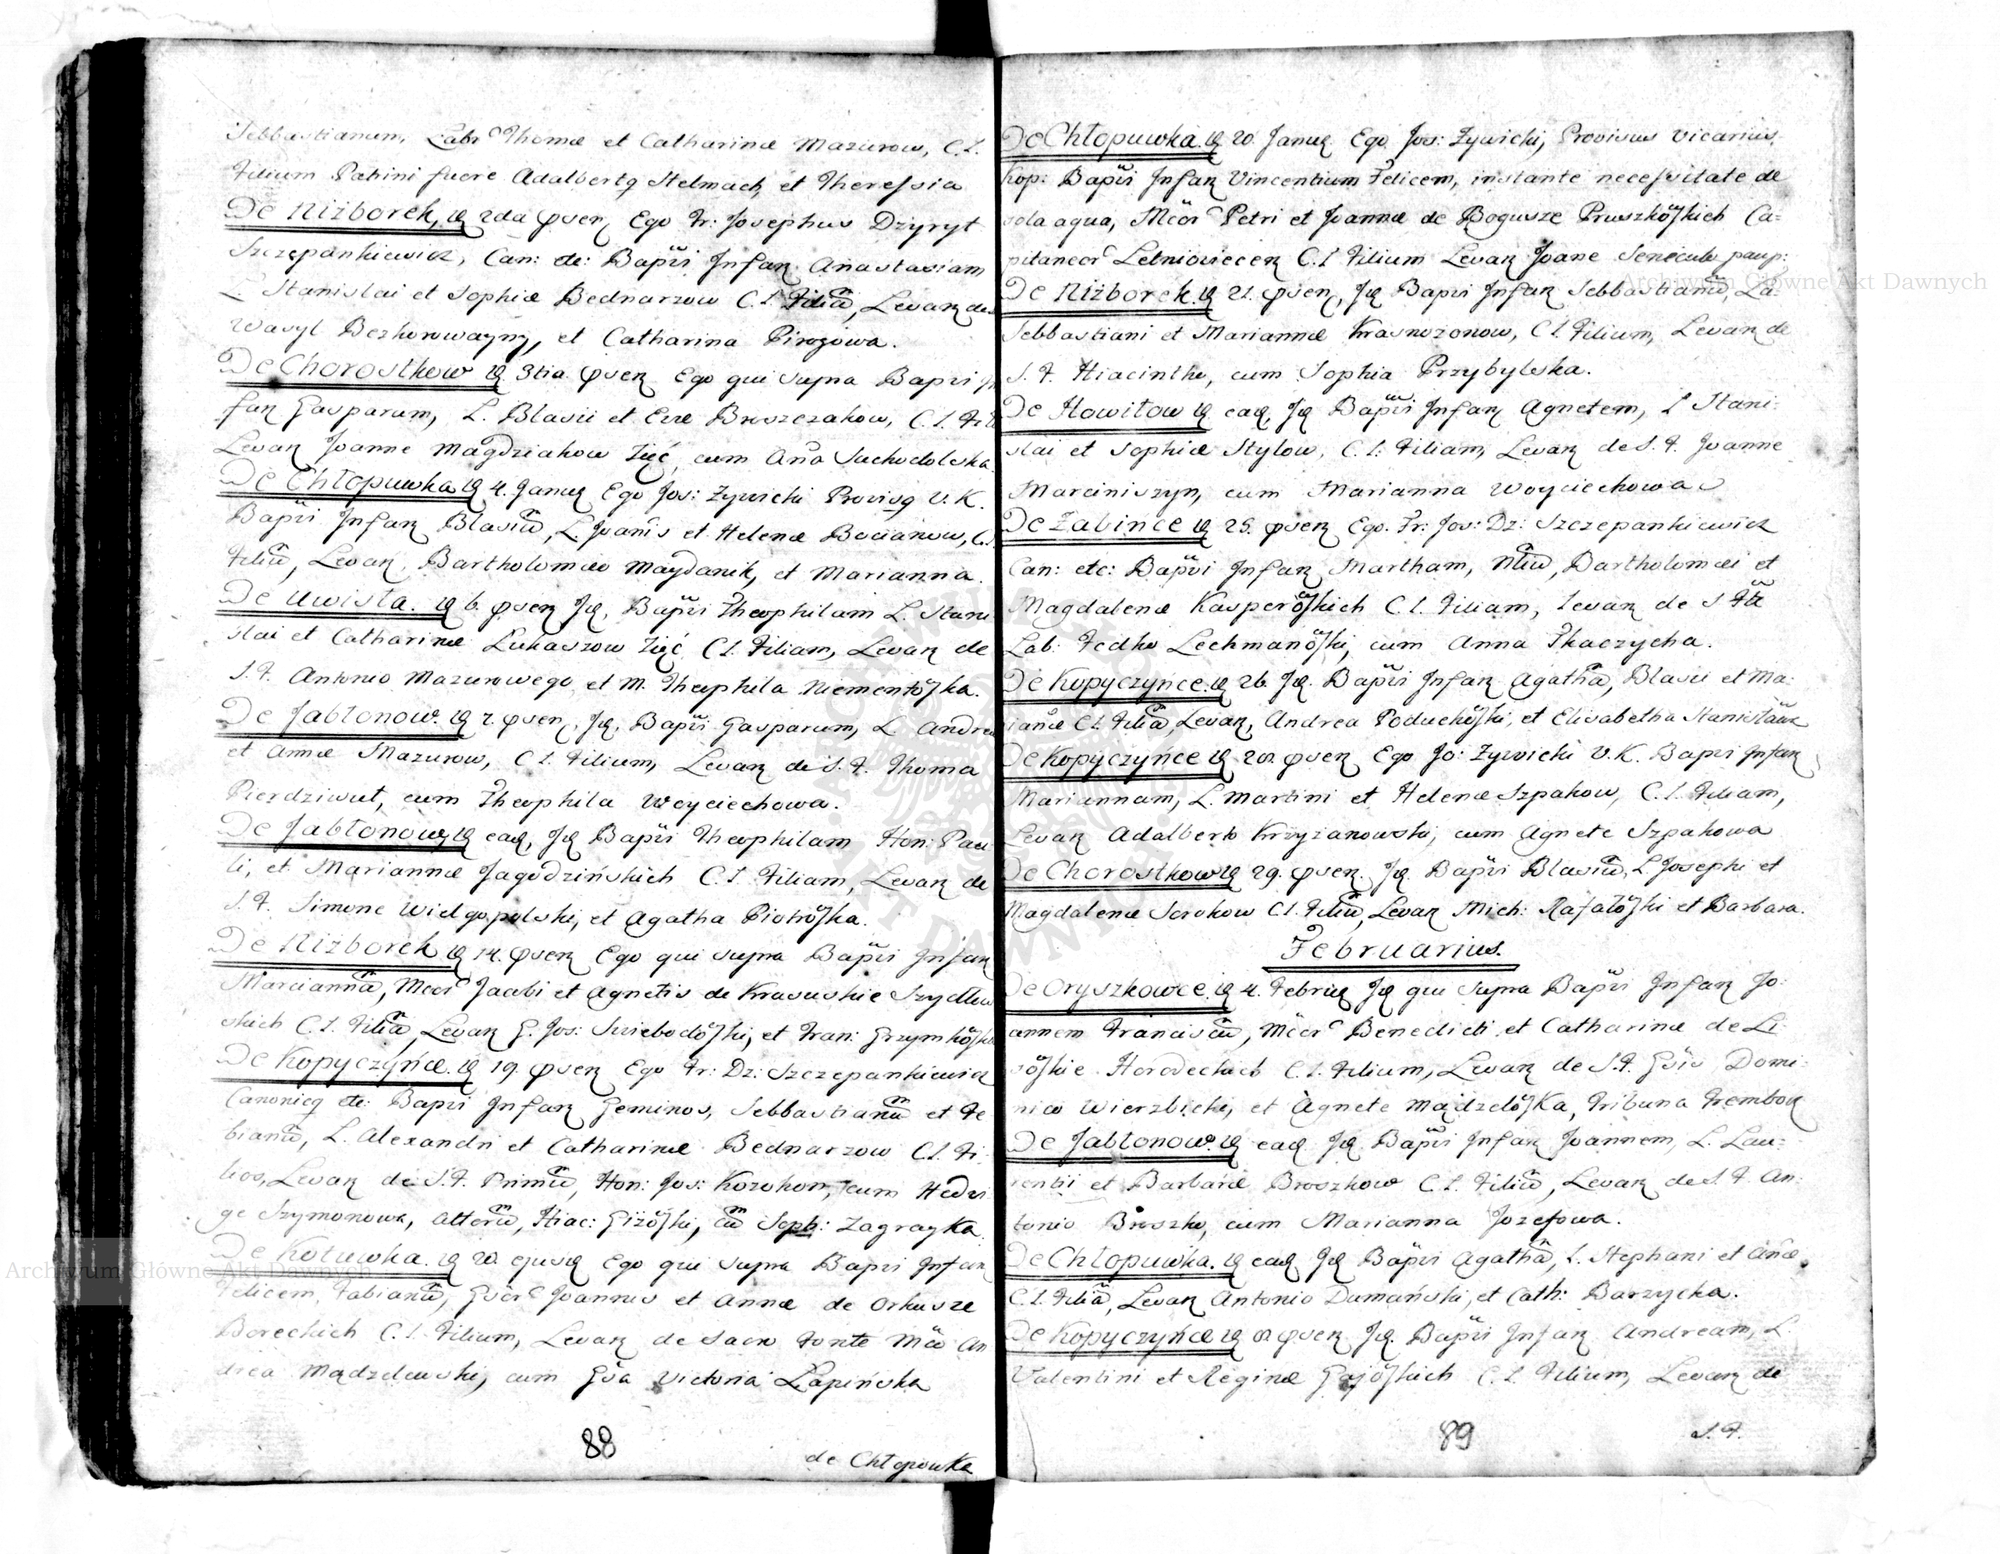 Sebbastianum, Labr Thomæ et Catharinæ Mazurow, C. L.
Filium Patrini fuere Adalbertq Stelmach, et Theressia
De Niżborek, 2da φsen, Ego Fr: Josephus Dzyryt
Szczepankiewicz, Can: etc: Bapizi Infan Anastasiam
L. Stanislai et Sophiæ Bednarzow C. L. Filia, Levan de
Wasyl Bezhorowayny, et Catharina Pirogowa.
De Chorostkow 3tia φsen Ego qui supra Bapizi In
fan Gasparum, L. Blasii et Evæ Broszczakow, C. L. Fil
Levan Joanne Magdziakow Zięć, cum Aña Suchodolska
De Chłopuwka 4. Janu Ego Jos: Zywicki Provisq V. K.
Bapizi Infan Blasiu, L. Joanis et Helenæ Bocianow, C.
Filiu, Levan Bartholomæo Maydanik, et Marianna.
De Uwisła. 6. φsen Jd, Bapizi Theophilam L. Stani
slai et Catharinæ Łukaszow Zięć C. L. Filiam, Levan de
S. F. Antonio Mazurowego, et M. Theophila Niementoska.
De Jabłonow. 7. φsen, Jd, Bapizi Gasparum, L Andrea
et Annæ Mazurow, C L. Filium, Levan de S. F. Thoma
Pierdziwut, cum Theophila Woyciechowa.
De Jabłonow ead, Jd Bapizi Theophilam Hon: Pau
li, et Mariannæ Jagodzińskich C. L. Filiam, Levan de
S. F. Simone Wielgopolski, et Agatha Piotroska.
De Niżborek 14. φsen Ego qui supra Bapizi Infan
Marcianna, Mccr Jacobi et Agnetis de Krasuskie Szydłow
skich C. L. Filia, Levan G. Jos: Swiebodoski, et Fran: Grzymkoska
De Kopyczyńce. 19. φsen Ego Fr: Dz: Szczepankiewicz
Canonicq etc: Bapizi Infan Geminos, Sebbastianu et Fa
bianu, L. Alexandri et Catharinæ Bednarzow C. L. Fi
lios, Levan de S. F. Primu, Hon: Jos: Kozokon, cum Hedvi
ge Szymonowa, Alteru, Hiac: Gizoski, cu Soph: Zagrayka
De Kotuwka. 20. ejusd Ego qui supra Bapizi Infan
Felicem, Fabianu, Gser Joannis et Annæ de Orkusze
Boreckich C. L. Filium, Levan de Sacro Fonte Mco An
drea Mądzelewski, cum Gsa Victoria Łapińska
88
de Chłopowka
De Chłopuwka. 20. Janu Ego Jos: Zywicki, Provisus Vicarius,
Kop: Bapizi Infan Vincentium Felicem, instante necessitate de
sola aqua, Mccr Petri et Joannæ de Bogusze Pruszkoskich Ca=
pitaneor Letnioviecen C. L Filium Levan Joane Seniculo paup:
De Niżborek. 21. φsen, Jd Bapizi Infan Sebbastianu, La
Sebbastiani et Mariannæ Krasnozonow, C L. Filium, Levan de
S. F. Hiacintho, cum Sophia Przybylska.
De Howiłow ead, Jd Bapizi Infan Agnetem, L Stani:
slai et Sophiæ Stylow, C. L. Filiam, Levan de S. F. Joanne
Marciniszyn, cum Marianna Woyciechowa
De Zabince 25. φsen Ego. Fr: Jos: Dz: Szczepankiewicz
Can: etc: Bapizi Infan Martham, Bartholomæi et
Magdalenæ Kasperoskich C. L. Filiam, Levan de S Fte
Lab: Fedko Lechmanoski, cum Anna Tkaczycha.
De Kopyczyńce. 26. Jd. Bapizi Infan Agatha, Blasii et Ma:
rianæ C. L. Filia, Levan, Andrea Poduchoski, et Elisabetha
De Kopyczyńce 28. φsen Ego Jo: Zywicki V. K. Bapizi Infan
Mariannam, L. Martini et Helenæ Szpakow, C. L. Filiam,
Levan Adalberto Krzyzanowski, cum Agnete Szpakowa
De Chorostkow 29. φsen. Jd. Bapizi Blasiu, L Josephi et
Magdalenæ Sorokow C L. Filiu, Levan Mich: Rafałoski et Barbara.
Februarius.
De Oryszkowce. 4. Febru Jd qui supra Bapizi Infan Jo:
annem Franciscu, Mccr Benedicti et Catharinæ de Li
soskie Horodeckich C. L. Filium, Levan de S. F. Gsis Domi:
nico Wierzbicki, et Agnete Mądzeloska, Tribuna Trembow
De Jabłonow. ead Jd Bapizi Infan Joannem, L. Lau=
rentii et Barbaræ Broszkow C. L. Filiu, Levan de S. F. An:
tonio Broszko, cum Marianna Jozefowa.
De Chłopuwka. ead Jd Bapizi Agatha, L. Stephani et Añæ
C. L. Filia, Levan Antonio Dumański, et Cath: Barzycka.
De Kopyczyńce 8. φsen Jd Bapizi Infan Andream, L.
Valentini et Reginæ Gajoskich C. L Filium, Levan de
89
S. F.
Archiwum Główne Akt Dawnych
Archiwum Główne Akt Dawnych